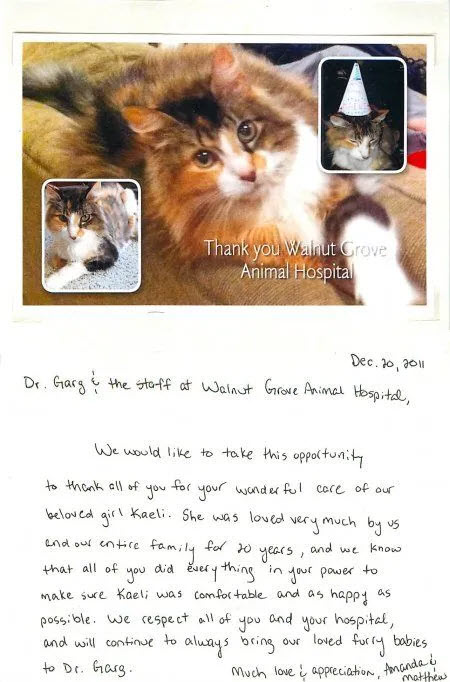 Thank you Walnut Grove
Animal Hospital
Dec. 20, 2011
Dr. Garg & the staff at Walnut Grove Animal Hospital,
We would like to take this opportunity
to thank all of you for your wonderful care of our
beloved girl Kaeli. She was loved very much by us
and our entire family for 20 years, and we know
that all of you did everything in your power to
make sure Kaeli was comfortable and as happy as
possible. We respect all of you and your hospital,
and will continue to always bring our loved furry babies
to Dr. Garg.
Much love & appreciation, Amanda &
Matthew